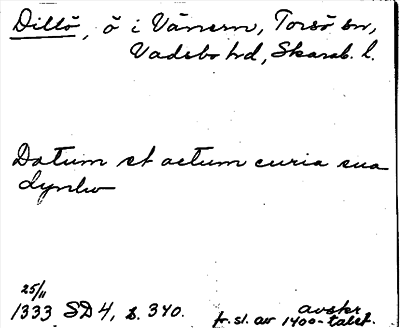 Dillö, ö i Vänern, Torsö sn,
Vadsbo hd, Skarab. l.
Datum et actum curia sua
Dynlw
25/11
1333 SD 4, s. 340.
avskr
fr. sl. av 1400-talet.